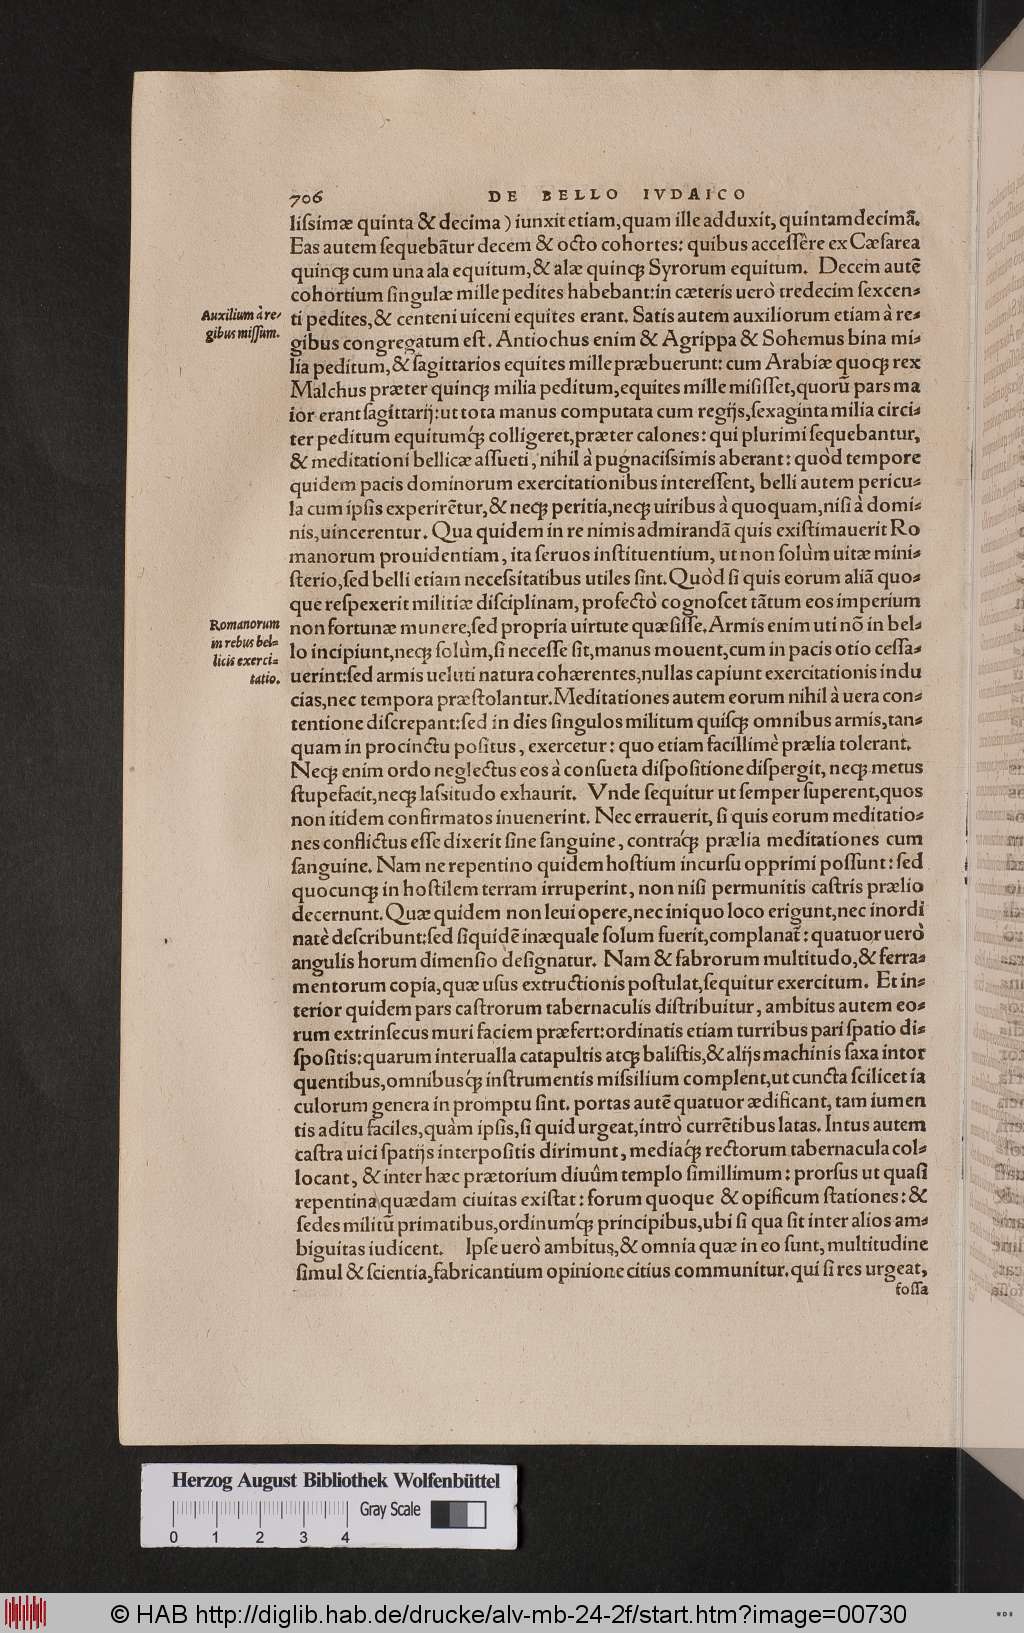 706 DE BELLO IVDAICO
liſsimæ quinta & decima) iunxit etiam, quam ille adduxit, quintam decimã.
Eas autem ſequebãtur decem & octo cohortes: quibus acceſſère ex Cæſarea
quinq; cum una ala equitum, & alæ quinq; Syrorum equitum. Decem autẽ
cohortium ſingulæ mille pedites habebant: in cæteris uerò tredecim ſexcen-
Auxilium à re-
gibus miſſum.
ti pedites, & centeni uiceni equites erant. Satis autem auxiliorum etiam à re-
gibus congregatum eſt. Antiochus enim & Agrippa & Sohemus bina mi-
lia peditum, & ſagittarios equites mille præbuerunt: cum Arabiæ quoq; rex
Malchus præter quinq; milia peditum, equites mille miſiſſet, quorũ pars ma
ior erant ſagittarij: ut tota manus computata cum regijs, ſexaginta milia circi-
ter peditum equitumq́; colligeret, præter calones: qui plurimi ſequebantur,
& meditationi bellicæ aſſueti, nihil à pugnaciſsimis aberant: quòd tempore
quidem pacis dominorum exercitationibus intereſſent, belli autem pericu-
la cum ipſis experirẽtur, & neq; peritia, neq; uiribus à quoquam, niſi à domi-
nis, uincerentur. Qua quidem in re nimis admirandã quis exiſtimauerit Ro
manorum prouidentiam, ita ſeruos inſtituentium, ut non ſolùm uitæ mini-
ſterio, ſed belli etiam neceſsitatibus utiles ſint. Quòd ſi quis eorum aliã quo-
que reſpexerit militiæ diſciplinam, profectò cognoſcet tãtum eos imperium
Romanorum
in rebus bel-
licis exerci-
tatio.
non fortunæ munere, ſed propria uirtute quæſiſſe. Armis enim uti nõ in bel-
lo incipiunt, neq; ſolùm, ſi neceſſe ſit, manus mouent, cum in pacis otio ceſſa-
uerint: ſed armis ueluti natura cohærentes, nullas capiunt exercitationis indu
cias, nec tempora præſtolantur. Meditationes autem eorum nihil à uera con-
tentione diſcrepant: ſed in dies ſingulos militum quiſq; omnibus armis, tan-
quam in procinctu poſitus, exercetur: quo etiam facillimè prælia tolerant.
Neq; enim ordo neglectus eos à conſueta diſpoſitione diſpergit, neq; metus
ſtupefacit, neq; laſsitudo exhaurit. Vnde ſequitur ut ſemper ſuperent, quos
non itidem confirmatos inuenerint. Nec errauerit, ſi quis eorum meditatio-
nes conflictus eſſe dixerit ſine ſanguine, contraq́; prælia meditationes cum
ſanguine. Nam ne repentino quidem hoſtium incurſu opprimi poſſunt: ſed
quocunq; in hoſtilem terram irruperint, non niſi permunitis caſtris prælio
decernunt. Quæ quidem non leui opere, nec iniquo loco erigunt, nec inordi
natè deſcribunt: ſed ſiquidẽ inæquale ſolum fuerit, complanat̃: quatuor uerò
angulis horum dimenſio deſignatur. Nam & fabrorum multitudo, & ferra-
mentorum copia, quæ uſus extructionis poſtulat, ſequitur exercitum. Et in-
terior quidem pars caſtrorum tabernaculis diſtribuitur, ambitus autem eo-
rum extrinſecus muri faciem præfert: ordinatis etiam turribus pari ſpatio di-
ſpoſitis: quarum interualla catapultis atq; baliſtis, & alijs machinis ſaxa intor
quentibus, omnibusq́; inſtrumentis miſsilium complent, ut cuncta ſcilicet ia
culorum genera in promptu ſint. portas autẽ quatuor ædificant, tam iumen
tis aditu faciles, quàm ipſis, ſi quid urgeat, intrò currẽtibus latas. Intus autem
caſtra uici ſpatijs interpoſitis dirimunt, mediaq́; rectorum tabernacula col-
locant, & inter hæc prætorium diuûm templo ſimillimum: prorſus ut quaſi
repentina quædam ciuitas exiſtat: forum quoque & opificum ſtationes: &
ſedes militũ primatibus, ordinumq́; principibus, ubi ſi qua ſit inter alios am-
biguitas iudicent. Ipſe uerò ambitus, & omnia quæ in eo ſunt, multitudine
ſimul & ſcientia, fabricantium opinione citius communitur. qui ſi res urgeat,
foſſa
Herzog August Bibliothek Wolfenbüttel
Gray Scale
0 1 2 3 4
© HAB http://diglib.hab.de/drucke/alv-mb-24-2f/start.htm?image=00730